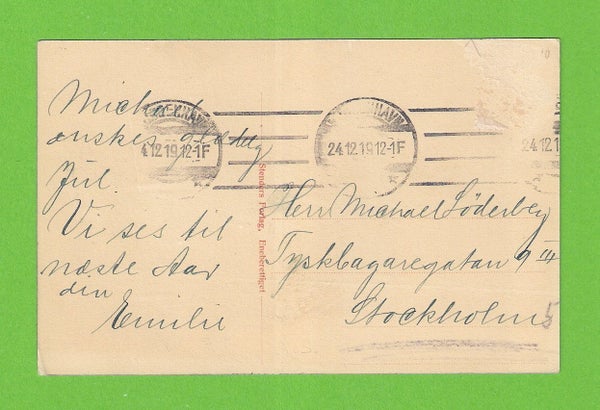 Michael
ønskes glædelig
Jul.
Vi ses til
næste Aar
den
Emilie
24.12.19.12-1F
24.12.1
Stenders Forlag, Eneberettiget
Herr Michael Söderberg
Tyskbagaregatan 9 III
Stockholm 5